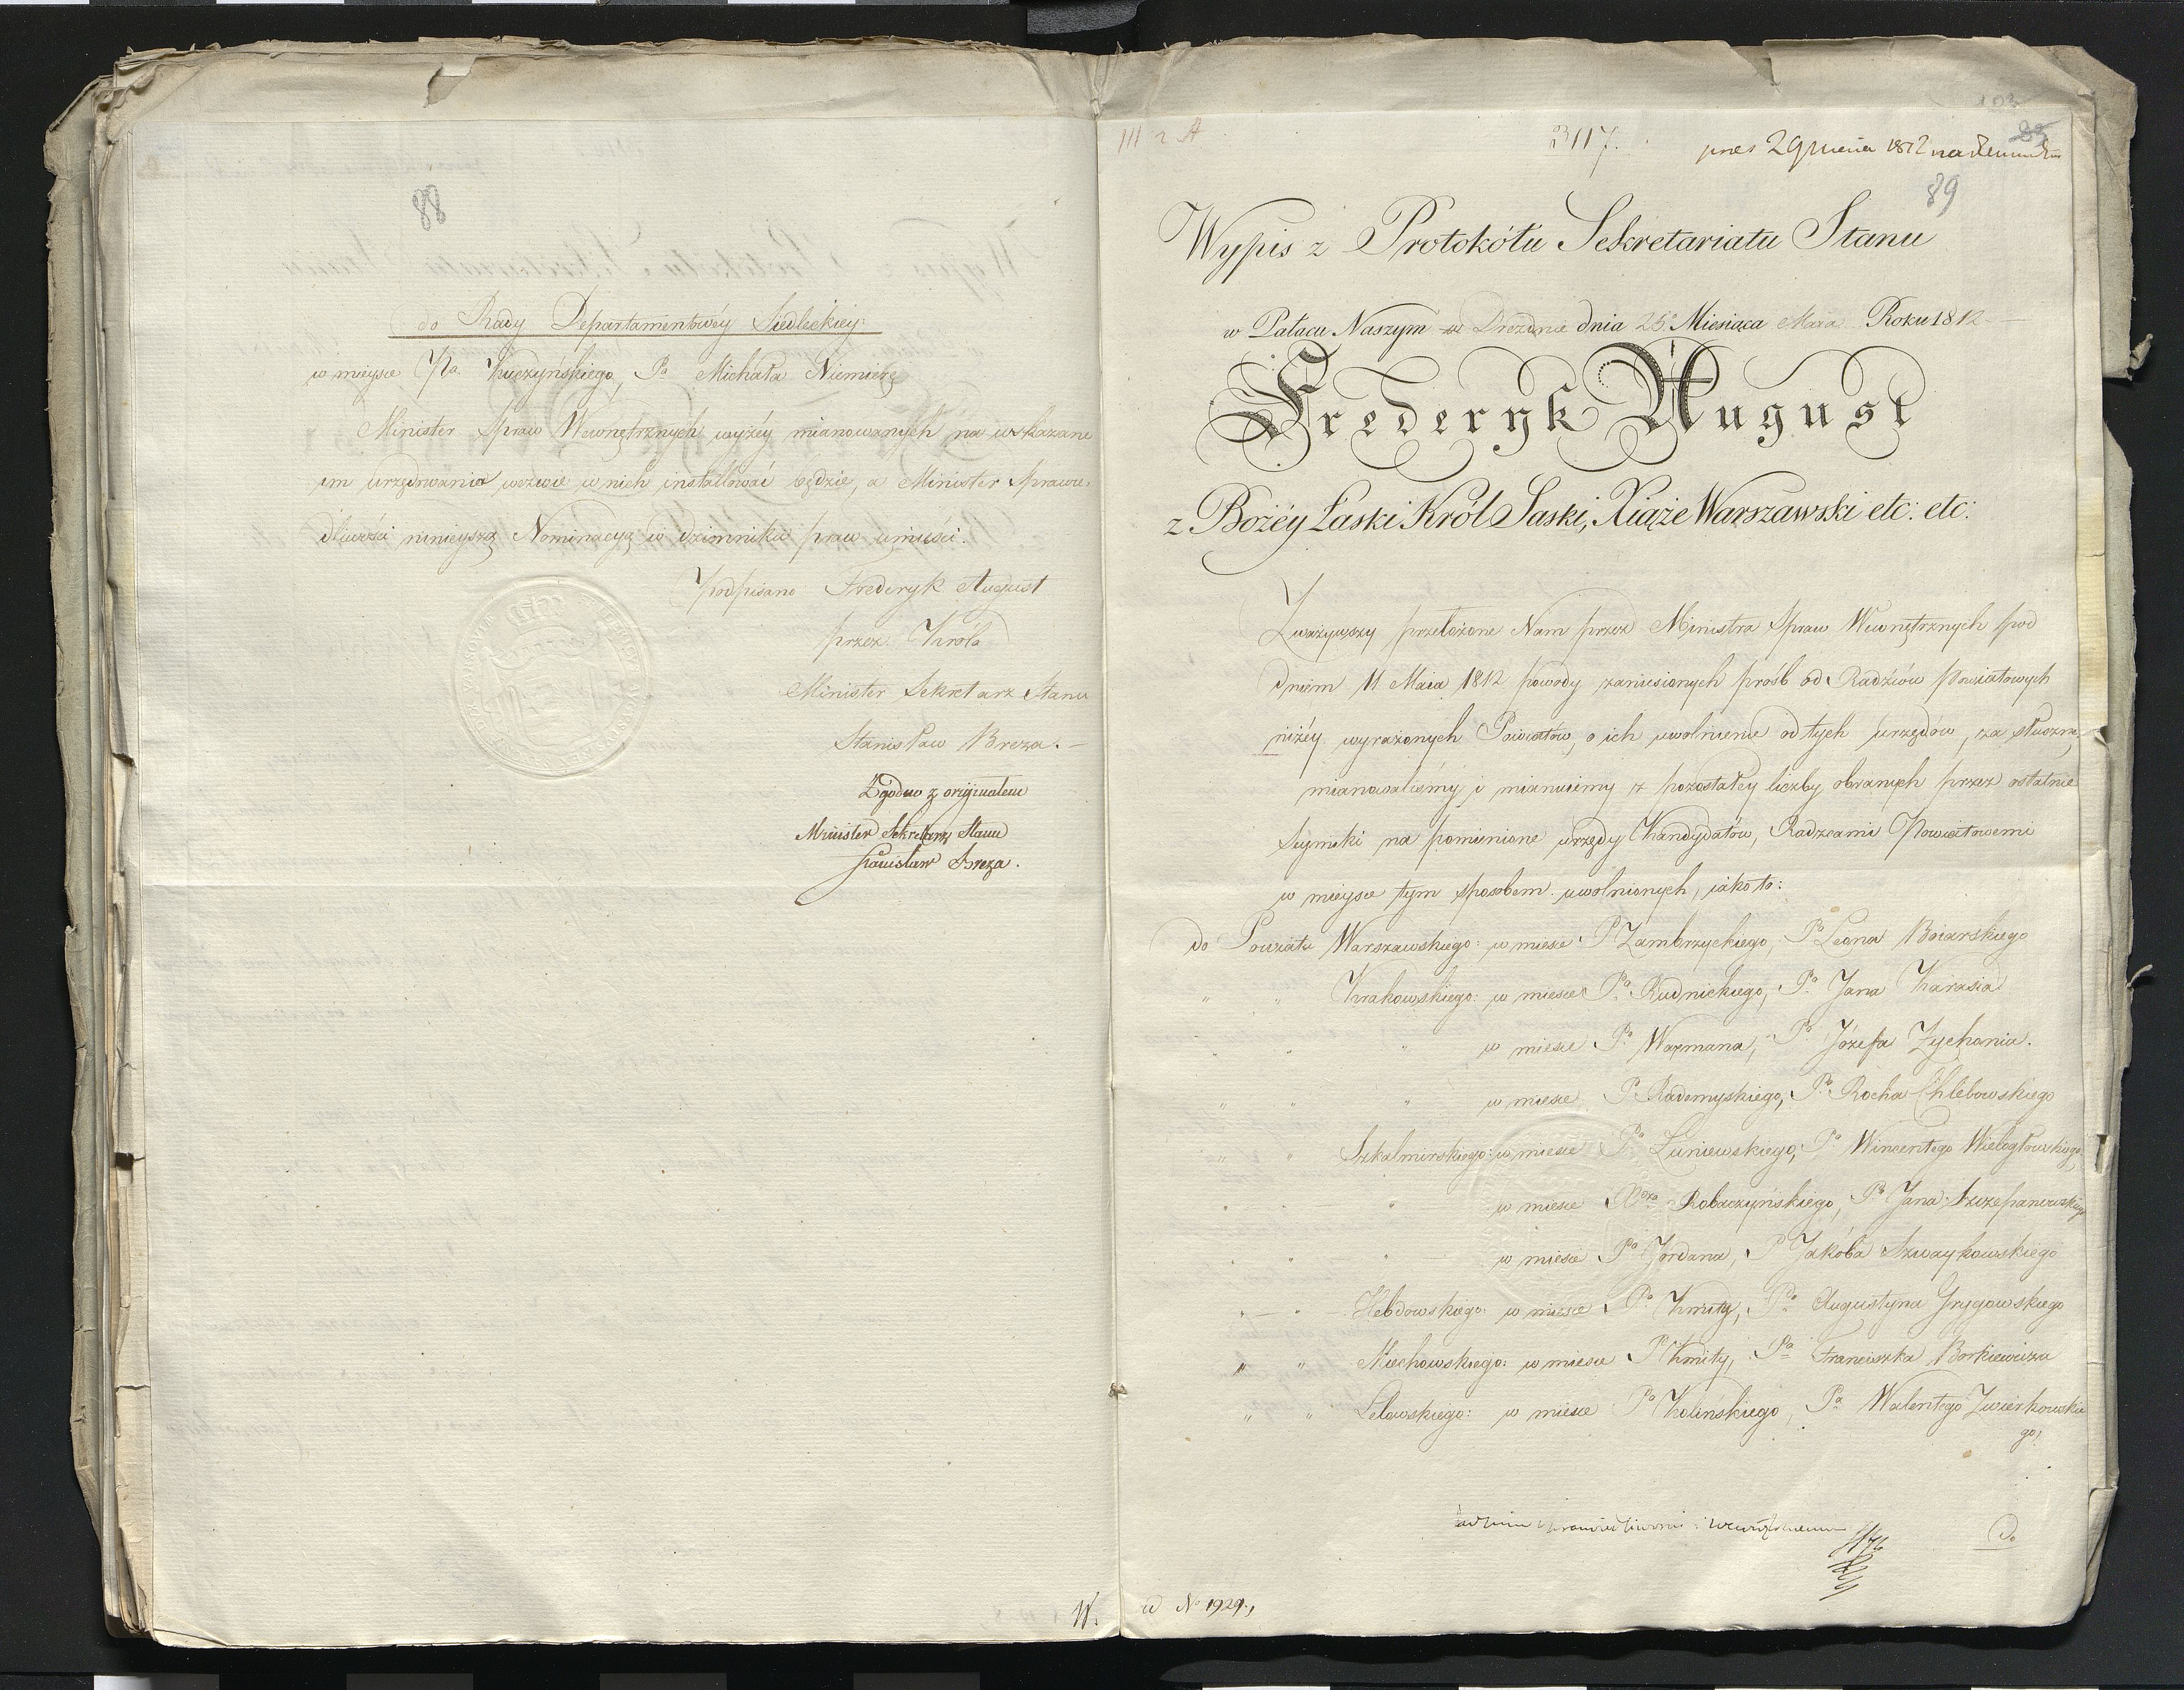 88
do Rady Departamentowéy Siedleckiey:
w mieysce Pa. Kuczyńskiego, Pa Michała Niemierę
Minister Spraw Wewnętrznych wyżéy mianowanych na wskazane
im urzędowania wezwie w nich installować będzie, a Minister Sprawie-
dliwości ninieyszą Nominacyą w dzienniku praw umieści.
Podpisano Frederyk August
przez Króla
Minister Sekretarz Stanu
Stanisław Breza. –
Zgodno z originałem
Minister Sekretarz Stanu
Stanisław Breza.
W.
III 2 A
103
117.
1812
89
Wypis z Protokółu Sekretariatu Stanu
w Pałacu Naszym w Dreznie dnia 25o Miesiąca Maia Roku 1812
Frederyk August
z Bożéy Łaski Król Saski, Xiąże Warszawski etc: etc:
Zważywszy przełożone Nam przez Ministra Spraw Wewnętrznych pod
dniem 11 Maia 1812 powody zaniesionych próśb od Radźców Powiatowych
niżéy wyrażonych Powiatów, o ich uwolnienie od tych urzędów, za słuszne,
mianowaliśmy i mianuiemy z pozostałey liczby obranych przez ostatnie
Seymiki na pomienione urzędy Kandydatów, Radzcami Powiatowemi
w mieysce tym sposobem uwolnionych, iako to:
do Powiatu Warszawskiego: w miesce P Zambrzyckiego, Pa Leona Boiarskiego
" " Krakowskiego: w miesce Pa Rudnickiego, Pa Jana Karasia
" " " w miesce Pa Waxmana, Pa Józefa Zychonia.
" " " w miesce P. Radomyskiego, Pa Rocha Chlebowskiego
" " Szkalmirskiego: w miesce Pa Łuniewskiego, Pa Wincentego Wielogłowskiego
" " " w miesce Xdza Robaczyńskiego, Pa Jana Szczepanowskiego
" " " w miesce Pa Jordana, P Jakóba Szwaykowskiego
" " Hebdowskiego: w miesce Pa Kmity, Pa Augustyna Grygowskiego
" " Miechowskiego: w miesce P Kmity, Pa Franciszka Borkiewicza
" " Lelowskiego: w miesce Pa Kolińskiego, Pa Walentego Zwierkowskie
go,
do
ad No 1929.,